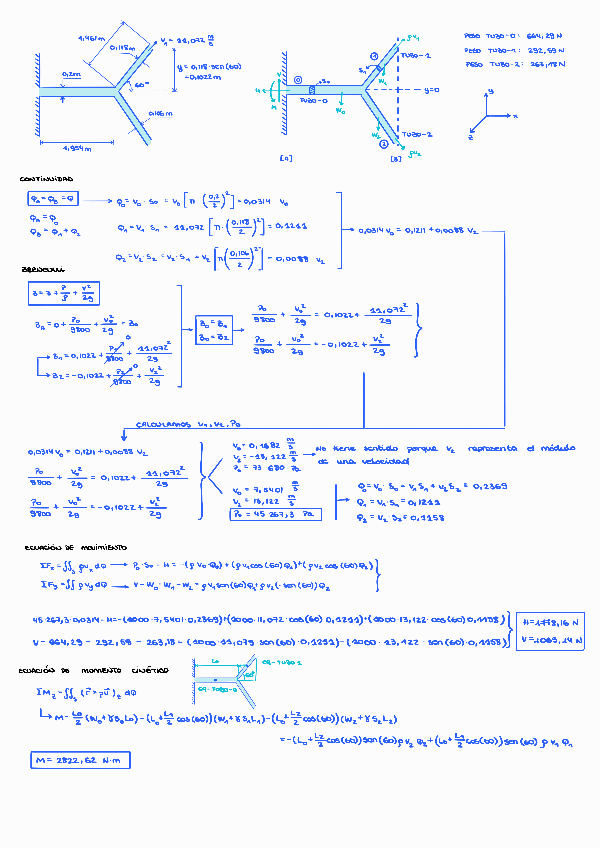 1,461m
0,118m
V₁ = 11,072 m/s
y = 0,118·sen(60)
= 0,1022m
0,2m
60°
0,106m
1,954m
ρV₁
TUBO-1
TUBO-0
y=0
W₀
W₁
W₂
TUBO-2
ρV₂
[A]
[B]
PESO TUBO-0: 664,29 N
PESO TUBO-1: 292,59 N
PESO TUBO-2: 263,18 N
y
x
z
CONTINUIDAD
Q_A = Q_B = Q
Q_A = Q₀
Q_B = Q₁ + Q₂
Q₀ = V₀ · S₀ = V₀ [π · (0,2/2)²] = 0,0314 V₀
Q₁ = V₁ · S₁ = 11,072 [π · (0,118/2)²] = 0,1211
Q₂ = V₂ · S₂ = V₂ · S₂ = V₂ [π (0,106/2)²] = 0,0088 V₂
0,0314 V₀ = 0,1211 + 0,0088 V₂
BERNOULLI
B = z + P/ρ + V²/2g
B_A = 0 + P₀/9800 + V₀²/2g = B₀
B₁ = 0,1022 + P₁/9800 + 11,072²/2g
B₂ = -0,1022 + P₂/9800 + V₂²/2g
B₀ = B₁
B₀ = B₂
P₀/9800 + V₀²/2g = 0,1022 + 11,072²/2g
P₀/9800 + V₀²/2g = -0,1022 + V₂²/2g
CALCULAMOS V₁, V₂, P₀
0,0314 V₀ = 0,1211 + 0,0088 V₂
P₀/9800 + V₀²/2g = 0,1022 + 11,072²/2g
P₀/9800 + V₀²/2g = -0,1022 + V₂²/2g
V₀ = 0,1682 m/s
V₂ = -13,122 m/s
P₀ = 73 680 Pa
No tiene sentido porque V₂ representa el módulo
de una velocidad
V₀ = 7,5401 m/s
V₂ = 13,122 m/s
P₀ = 45 267,3 Pa
Q = V₀ · S₀ = V₁S₁ + V₂S₂ = 0,2369
Q₁ = V₁ S₁ = 0,1211
Q₂ = V₂ S₂ = 0,1158
ECUACIÓN DE MOVIMIENTO
ΣFx = ∬ₛ ρVx dQ → P₀ · S₀ - H = -(ρ V₀ · Q₀) + (ρ V₁ cos(60) Q₁) + (ρ V₂ cos(60) Q₂)
ΣFy = ∬ ρVy dQ → V - W₀ - W₁ - W₂ = ρ V₁ sen(60) Q₁ + ρ V₂ (-sen(60)) Q₂
45 267,3 · 0,0314 - H = -(1000 · 7,5401 · 0,2369) + (1000 · 11,072 · cos(60) 0,1211) + (1000 · 13,122 · cos(60) · 0,1158)
V - 664,29 - 292,59 - 263,18 = (1000 · 11,072 · sen(60) · 0,1211) - (1000 · 13,122 · sen(60) · 0,1158)
ECUACIÓN DE MOMENTO CINÉTICO
L₀
60°
ΣM_z = ∬ₛ (r × ρu)_z dQ
M - L₀/2 (W₀ + γS₀L₀) - (L₀ + L₁/2 cos(60)) (W₁ + γS₁L₁) - (L₀ + L₂/2 cos(60)) (W₂ + γS₂L₂)
= -(L₀ + L₂/2 cos(60)) sen(60) ρ V₂ Q₂ + (L₀ + L₁/2 cos(60)) sen(60) ρ V₁ Q₁
M = 2822,62 N·m